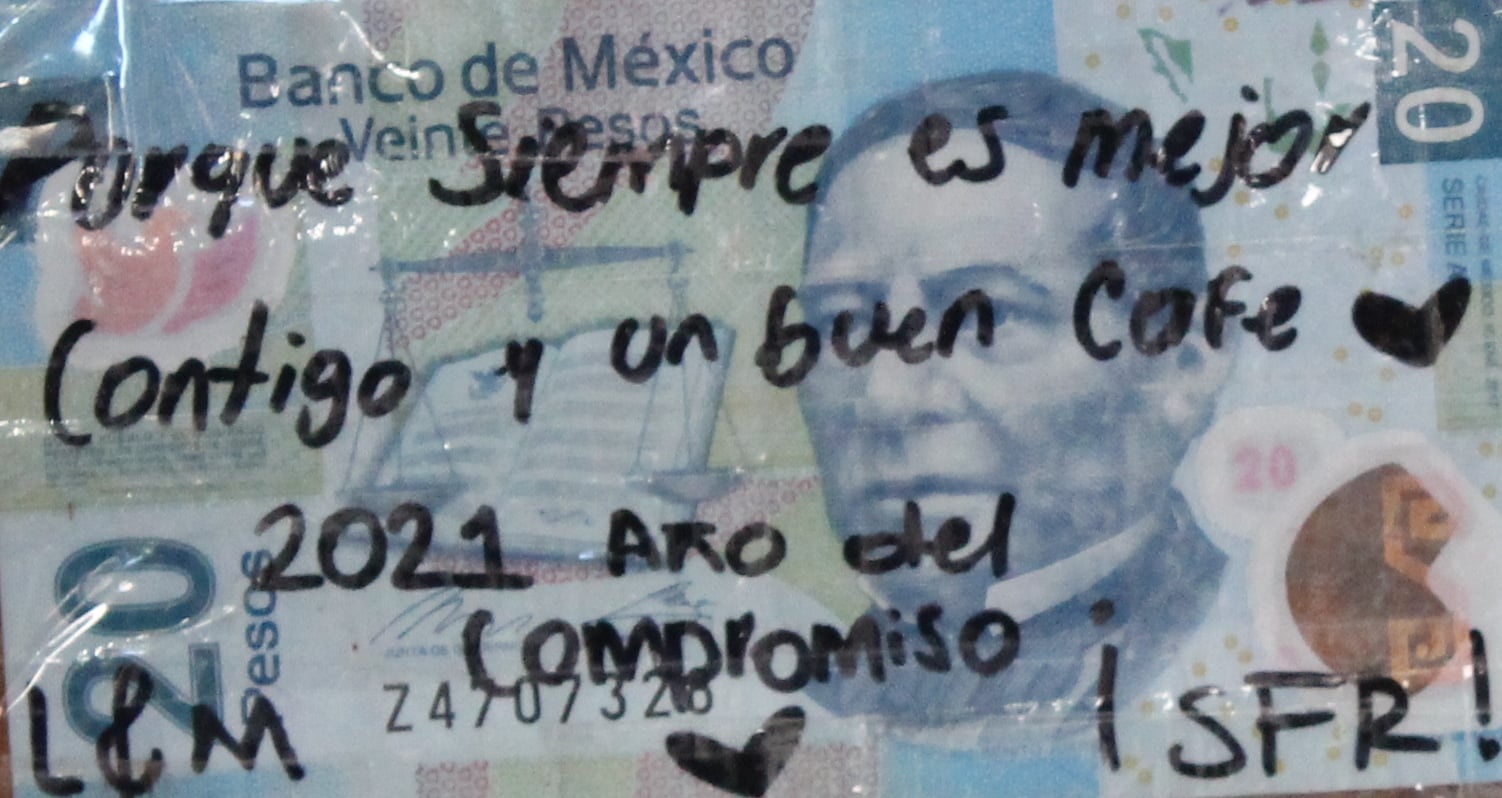 Banco de México
Veinte Pesos
20
Porque Siempre es mejor
Contigo y un buen Cafe
20
2021 Año del
Compromiso
20
Pesos
Z4707328
L & M
¡SFR!
SERIE A